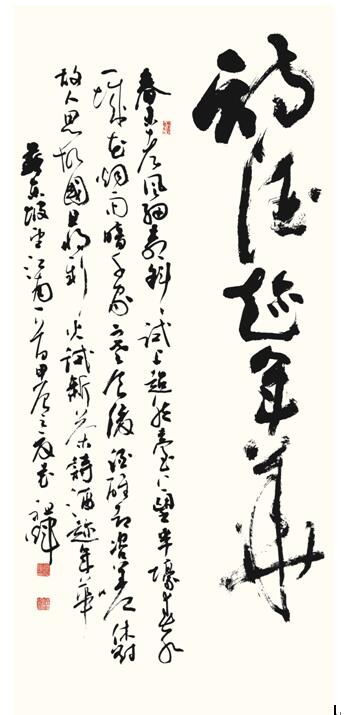 詩酒趁年華
春未老風細柳斜斜試上超然臺上望半壕春水
一城花烟雨暗千家寒食後酒醒却咨嗟休對
故人思故國且將新火試新茶詩酒趁年華
蘇東坡望江南一首甲